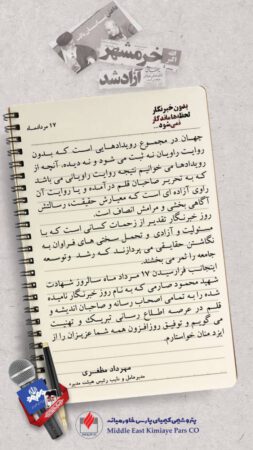 خرمشهر
آزاد شد
بدون خبرنگار
لحظه‌ها ماندگار
نمی‌شود...
۱۷ مردادماه
جهان در مجموع رویدادهایی است که بدون
روایت راویان نه ثبت می شود و نه دیده. آنچه از
رویدادها می خوانیم نتیجه روایت راویانی می باشد
که به تحریر صاحبان قلم در آمده و یا روایت آن
راوی آزاده ای است که معیارش حقیقت، رسالتش
آگاهی بخشی و مرامش انصاف است.
روز خبرنگار تقدیر از زحمات کسانی است که با
مسئولیت و آزادی و تحمل سختی های فراوان به
نگاشتن حقایقی می پردازند که رشد و توسعه
جامعه را ثمر می بخشند.
اینجانب فرارسیدن ۱۷ مرداد ماه سالروز شهادت
شهید محمود صارمی که به نام روز خبرنگار نامیده
شده را به تمامی اصحاب رسانه و صاحبان اندیشه و
قلم در عرصه اطلاع رسانی تبریک و تهنیت
می گویم و توفیق روزافزون همه شما عزیزان را از
ایزد منان خواستارم.
مهرداد مظفری
مدیرعامل و نایب رئیس هیئت مدیره
پتروشیمی کیمیای پارس خاورمیانه
Middle East Kimiaye Pars CO